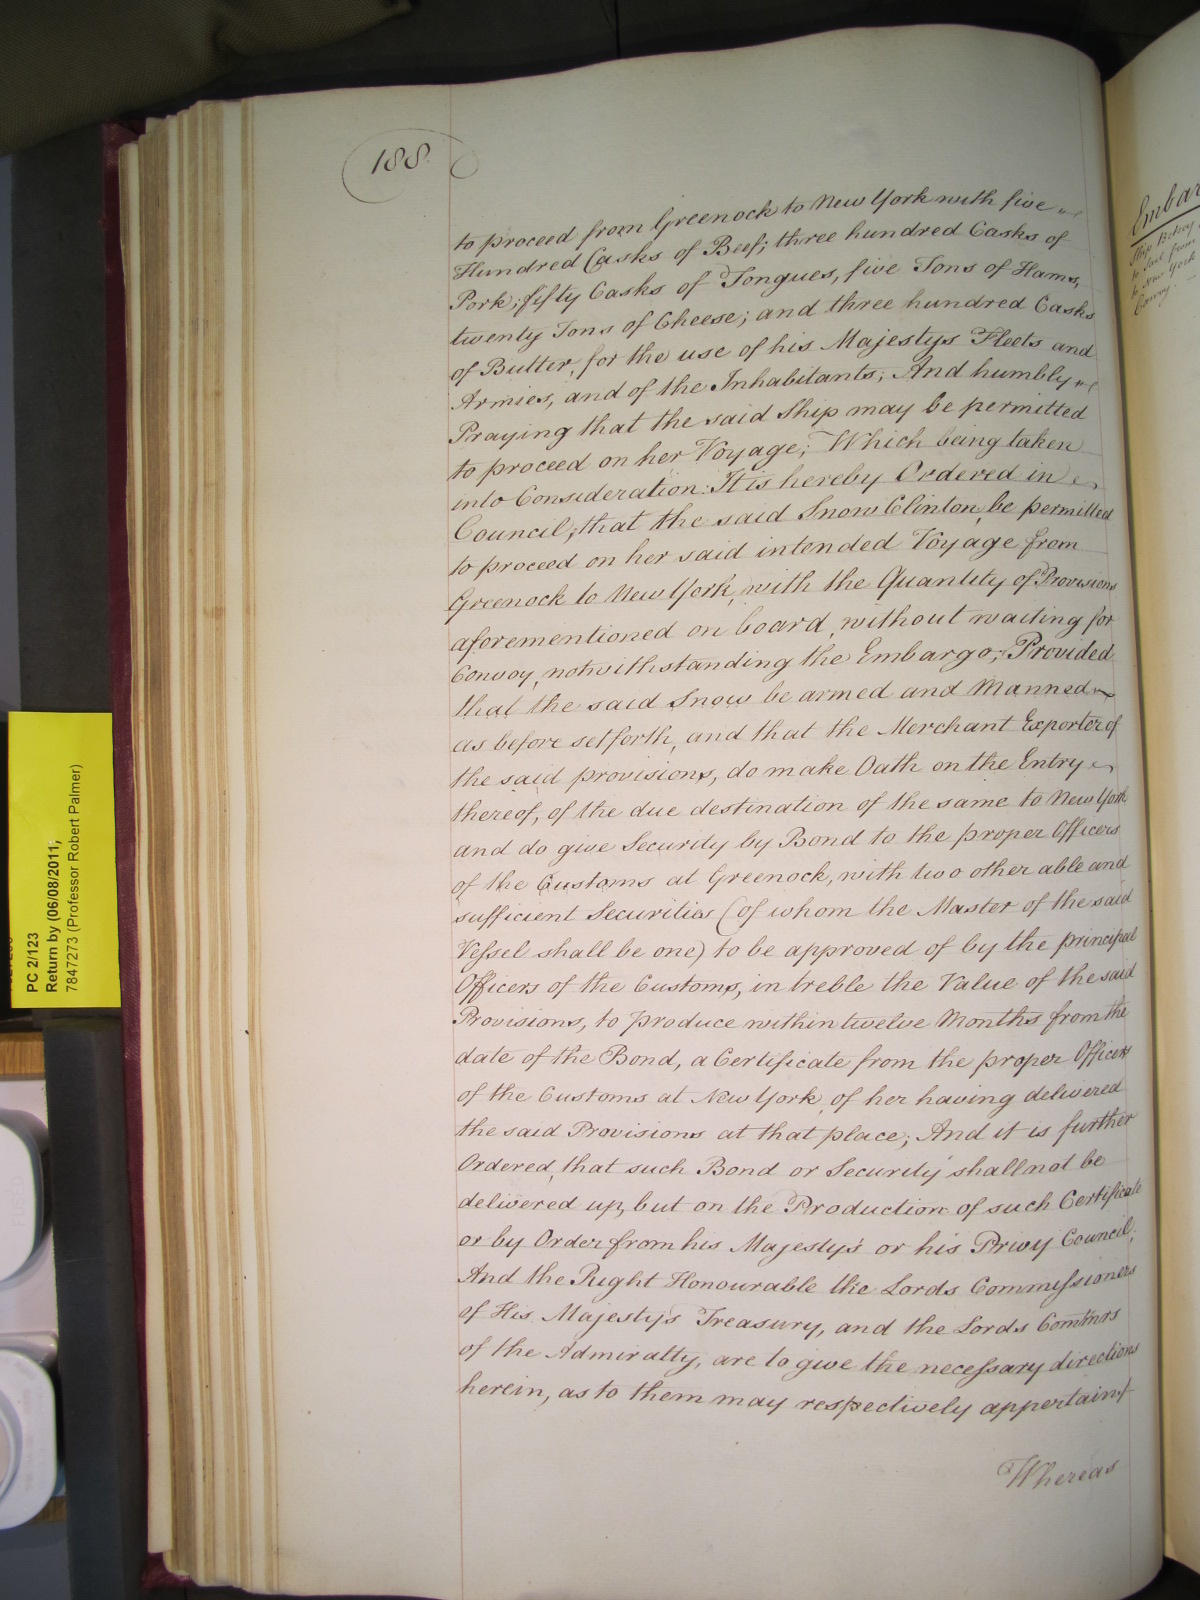 188
to proceed from Greenock to New York with five
Hundred Casks of Beef; three hundred Casks of
Pork; fifty Casks of Tongues, five Tons of Hams,
twenty Tons of Cheese; and three hundred Casks
of Butter, for the use of his Majestys Fleets and
Armies, and of the Inhabitants; And humbly
Praying that the said Ship may be permitted
to proceed on her Voyage; Which being taken
into Consideration: It is hereby Ordered in
Council, that the said Snow Clinton, be permitted
to proceed on her said intended Voyage from
Greenock to New York, with the Quantity of Provisions
aforementioned on board, without waiting for
Convoy, notwithstanding the Embargo; Provided
that the said Snow be armed and Manned
as before setforth, and that the Merchant Exporter of
the said provisions, do make Oath on the Entry
thereof, of the due destination of the same to New York
and do give Security by Bond to the proper Officers
of the Customs at Greenock, with two other able and
sufficient Securities (of whom the Master of the said
Vessel shall be one) to be approved of by the principal
Officers of the Customs, in treble the Value of the said
Provisions, to produce within twelve Months from the
date of the Bond, a Certificate from the proper Officers
of the Customs at New York, of her having delivered
the said Provisions at that place; And it is further
Ordered, that such Bond or Security shall not be
delivered up, but on the Production of such Certificate
or by Order from his Majesty's or his Privy Council;
And the Right Honourable the Lords Commissioners
of His Majesty's Treasury, and the Lords Commrs
of the Admiralty, are to give the necessary directions
herein, as to them may respectively appertain
Whereas
Embar
Ship Betsey
to Sail from
to New York
Convoy.
PC 2/123
Return by (06/08/2011;
7847273 (Professor Robert Palmer)